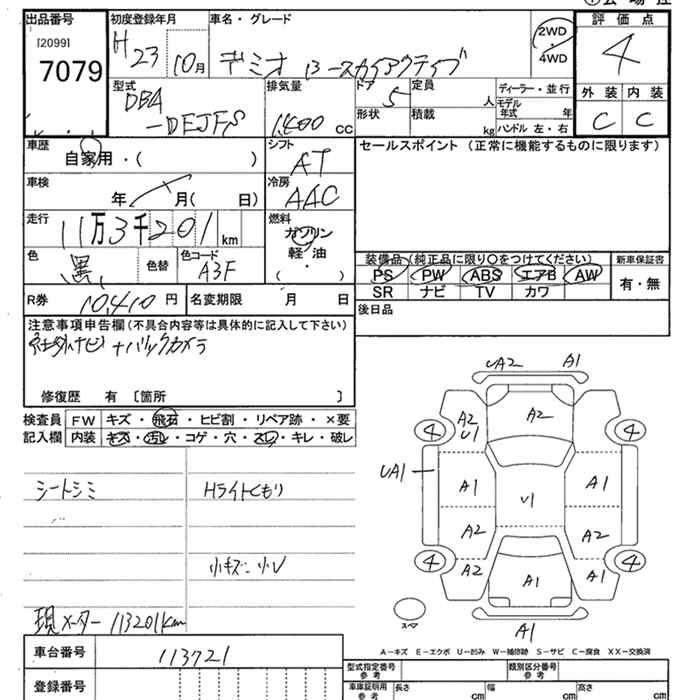 出品番号
[2099]
7079
初度登録年月
H23 10月
車名・グレード
デミオ 13-スカイアクティブ
2WD
4WD
評価点
4
外装 内装
C C
型式
DBA
-DEJFS
排気量
cc
ドア
5
形状
定員
人
積載
kg
ディーラー・並行
モデル年式 年
ハンドル 左・右
車歴
自家用・( )
シフト
AT
セールスポイント (正常に機能するものに限ります)
車検
年 月( 日)
冷房
AAC
走行
11万3千201km
燃料
ガソリン
軽・油
( ・ )
色
黒
色替
色コード
A3F
装備品 (純正品に限り○をつけてください)
PS PW ABS エアB AW
SR ナビ TV カワ
新車保証書
有・無
R券 10,410円
名変期限 月 日
後日品
注意事項申告欄(不具合内容等は具体的に記入して下さい)
社外ナビ+バックカメラ
修復歴 有 〔箇所 〕
検査員記入欄
FW キズ・飛石・ヒビ割・リペア跡・×要
内装 キズ・汚レ・コゲ・穴・スレ・キレ・破レ
シートシミ
Hライトくもり
小キズ 小U
現メーター 113201km
UA2 A1
A2
A2
U1
4 4
UA1
A1
U1
A1
A2
A2
4 4
A2
A1
A1
スペア
A1
A-キズ E-エクボ U-凹み W-補修跡 S-サビ C-腐食 XX-交換済
車台番号
113721
登録番号
型式指定番号
参考
類別区分番号
参考
車庫証明用
参考
長さ cm
幅 cm
高さ cm